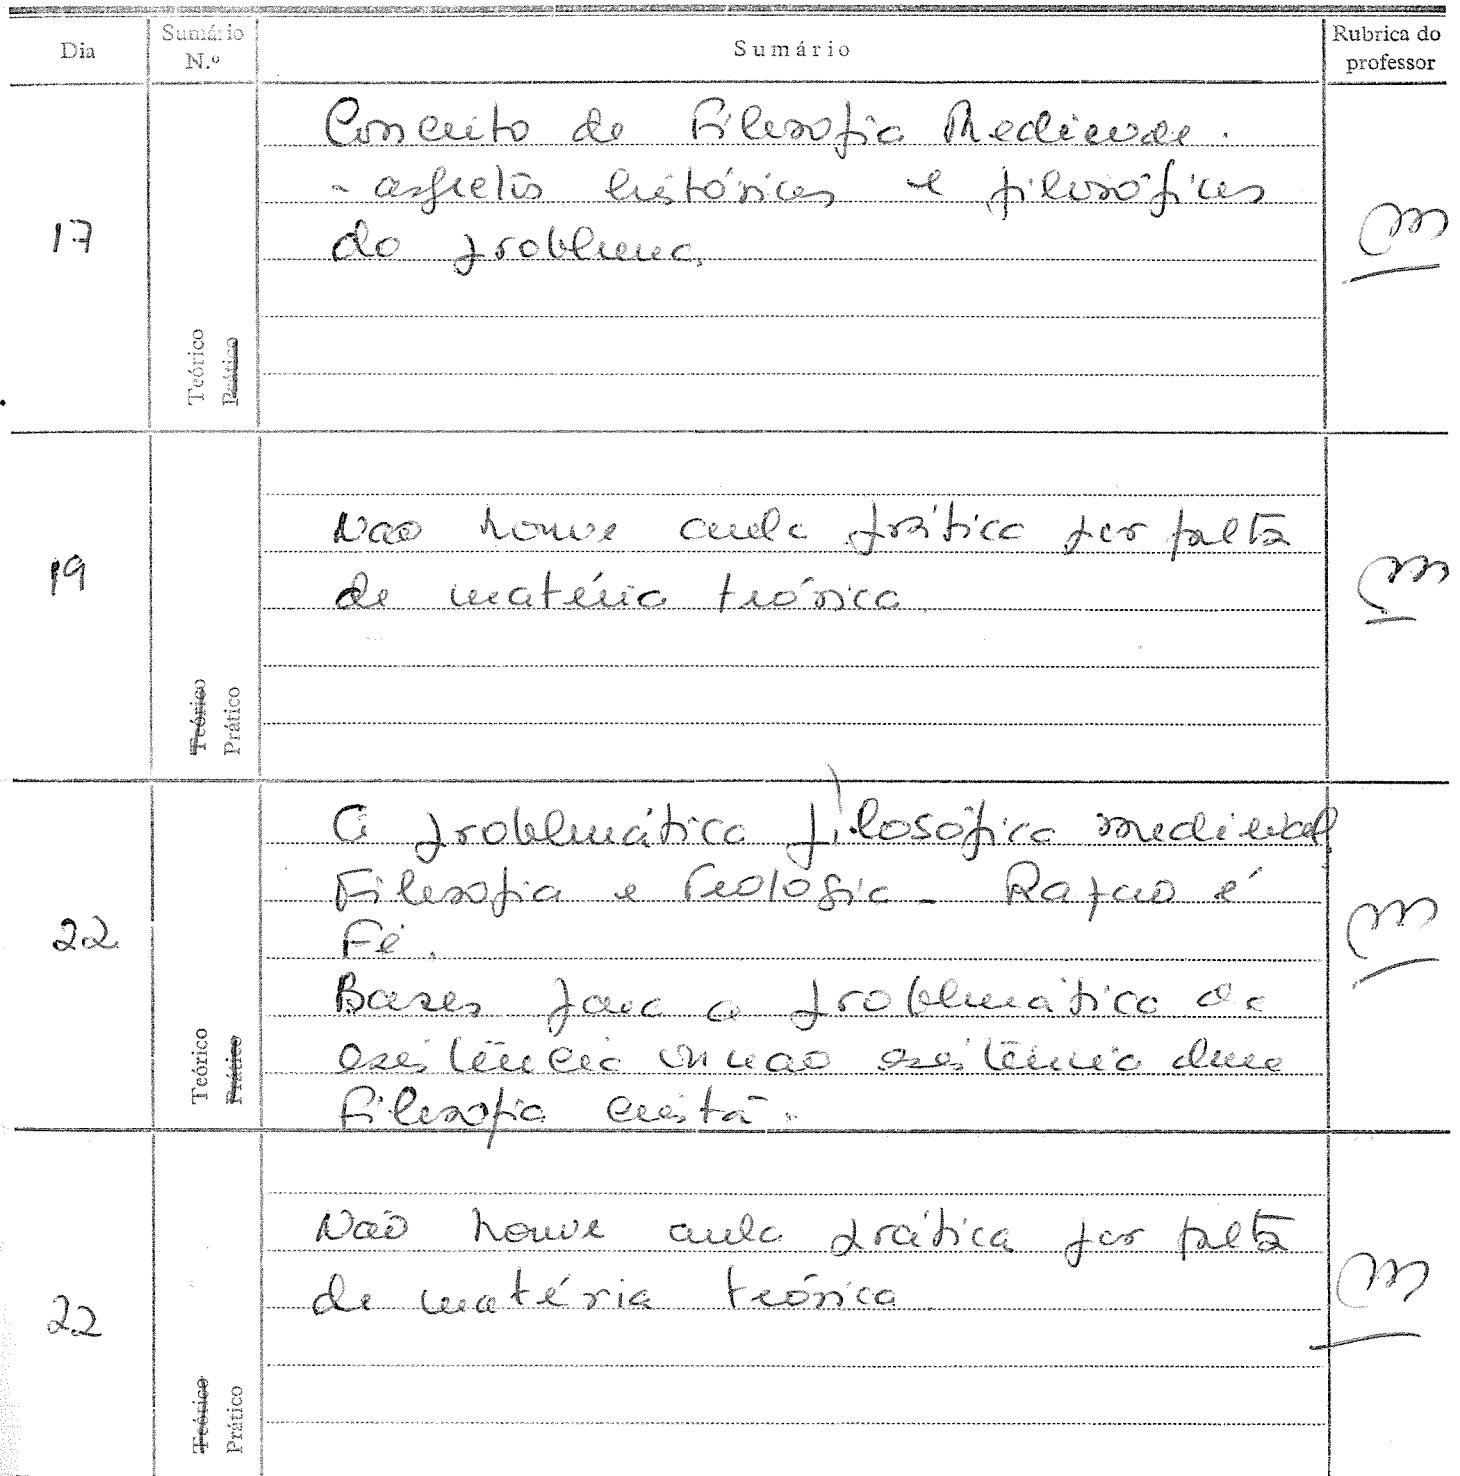 Dia
Sumário
N.º
Sumário
Rubrica do
professor
17
Conceito de Filosofia Medieval.
- aspectos históricos e filosóficos
do problema.
Teórico
Prático
19
Não houve aula prática por falta
de matéria teórica
Teórico
Prático
22
A problemática filosófica medieval
Filosofia e Teologia - Razão e
Fé.
Bases para a problemática da
existência ou não existência duma
Filosofia cristã.
Teórico
Prático
22
Não houve aula prática por falta
de matéria teórica
Teórico
Prático